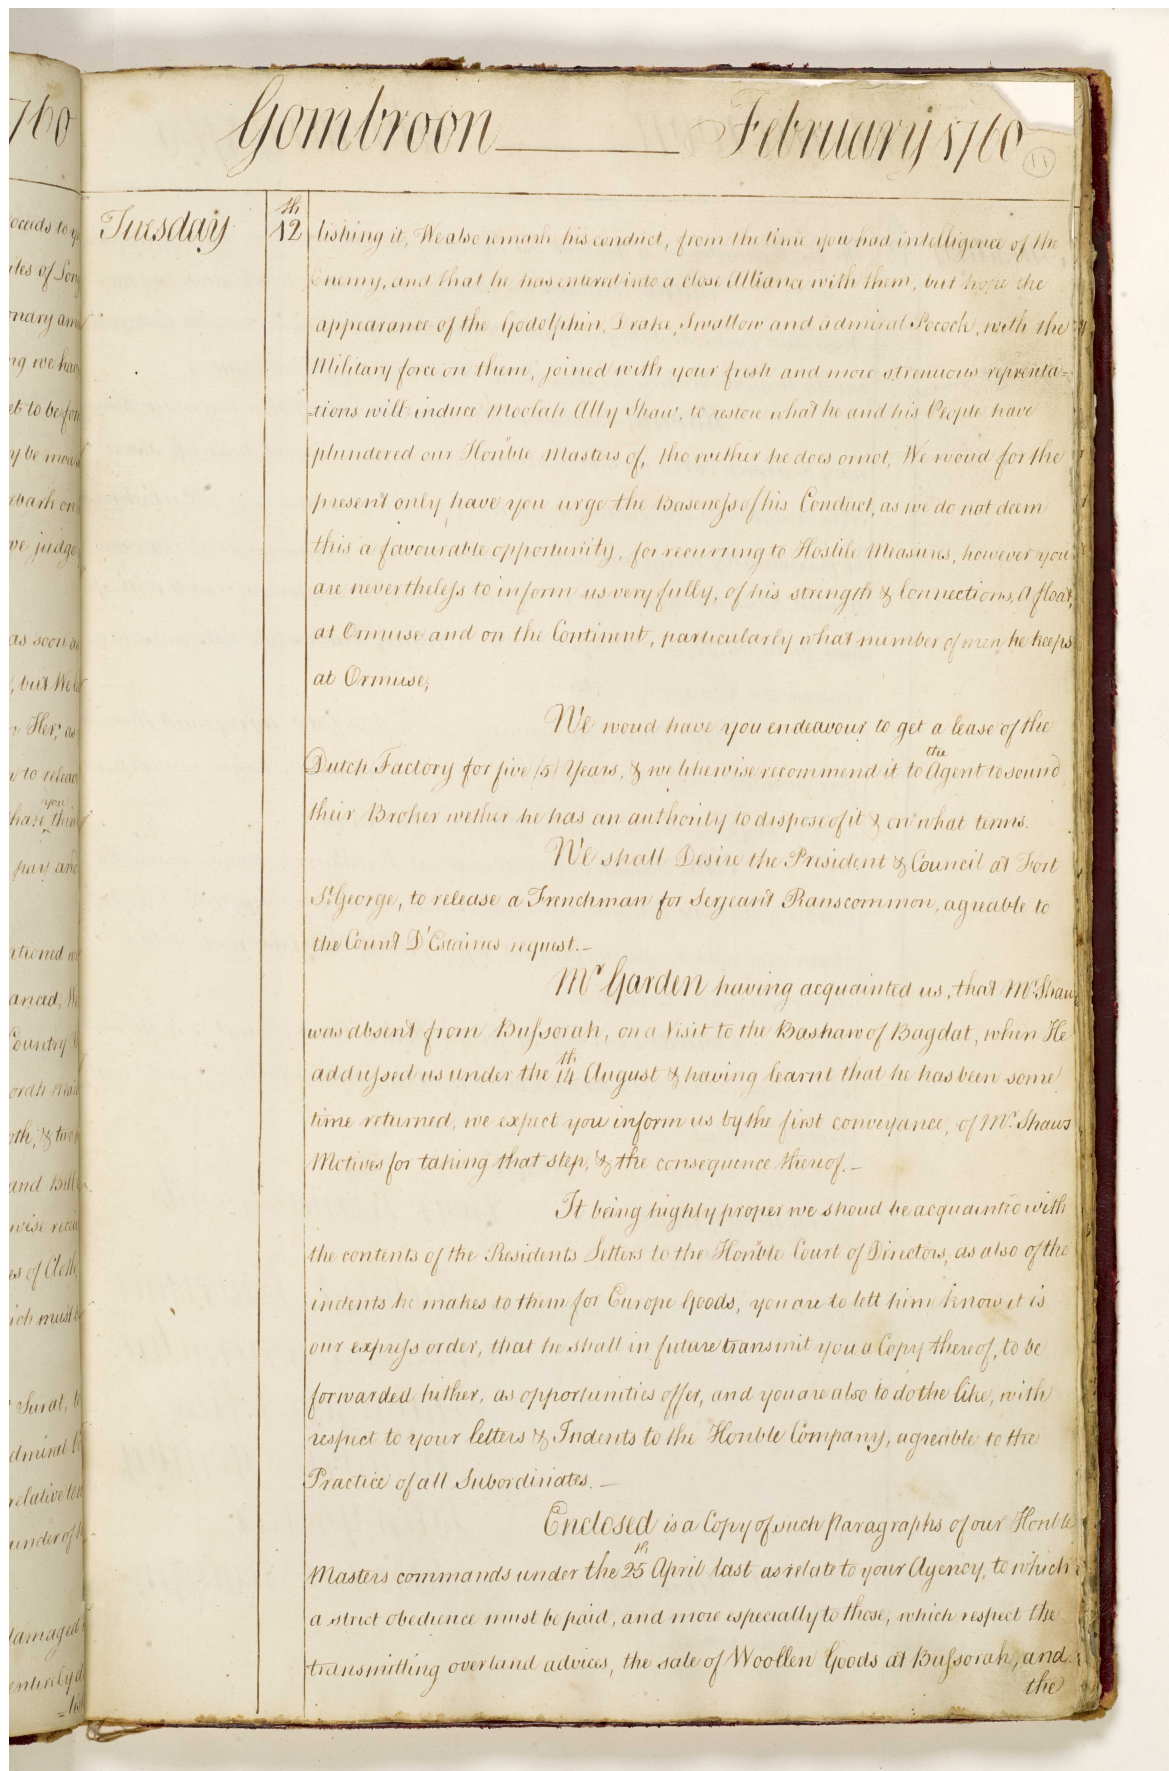 Gombroon February 1760
11
Tuesday 12th lishing it, We also remark his conduct, from the time you had intelligence of the
Enemy, and that he has entered into a close Alliance with them, but hope the
appearance of the Godolphin, Drake, Swallow and admiral Pocock, with the
Military force on them, joined with your fresh and more strenuous reprenta=
=tions will induce Moolah Ally Shaw, to restore what he and his People have
plundered our Hon'ble Masters of, tho wether he does or not, We woud for the
present only have you urge the Baseness of his Conduct, as we do not deem
this a favourable opportunity, for recurring to Hostile Measures, however you
are nevertheless to inform us very fully, of his strength & Connections, Afloat,
at Ormuse and on the Continent, particularly what number of men he keeps
at Ormuse;
We woud have you endeavour to get a lease of the
Dutch Factory for five (5) Years, & we likewise recommend it to the Agent to sound
their Broker wether he has an authority to dispose of it & on what terms.
We shall Desire the President & Council at Fort
St. George, to release a Frenchman for Serjeant Ranscommon, agreable to
the Count D'Estaines request.-
Mr Garden having acquainted us, that Mr. Shaw
was absent from Bussorah, on a Visit to the Bashaw of Bagdat, when He
addressed us under the 14th August & having learnt that he has been some
time returned, we expect you inform us by the first conveyance, of Mr. Shaws
Motives for taking that step, & the consequence thereof.-
It being highly proper we shoud be acquainted with
the contents of the Residents Letters to the Hon'ble Court of Directors, as also of the
indents he makes to them for Europe Goods, you are to lett him know it is
our express order, that he shall in future transmit you a Copy thereof, to be
forwarded hither, as opportunities offer, and you are also to do the like, with
respect to your letters & Indents to the Honble Company, agreable to the
Practice of all Subordinates.-
Enclosed is a Copy of such Paragraphs of our Honble
Masters commands under the 25th April last as relate to your Agency, to which
a strict obedience must be paid, and more especially to those, which respect the
transmitting overland advices, the sale of Woollen Goods at Bussorah, and
the